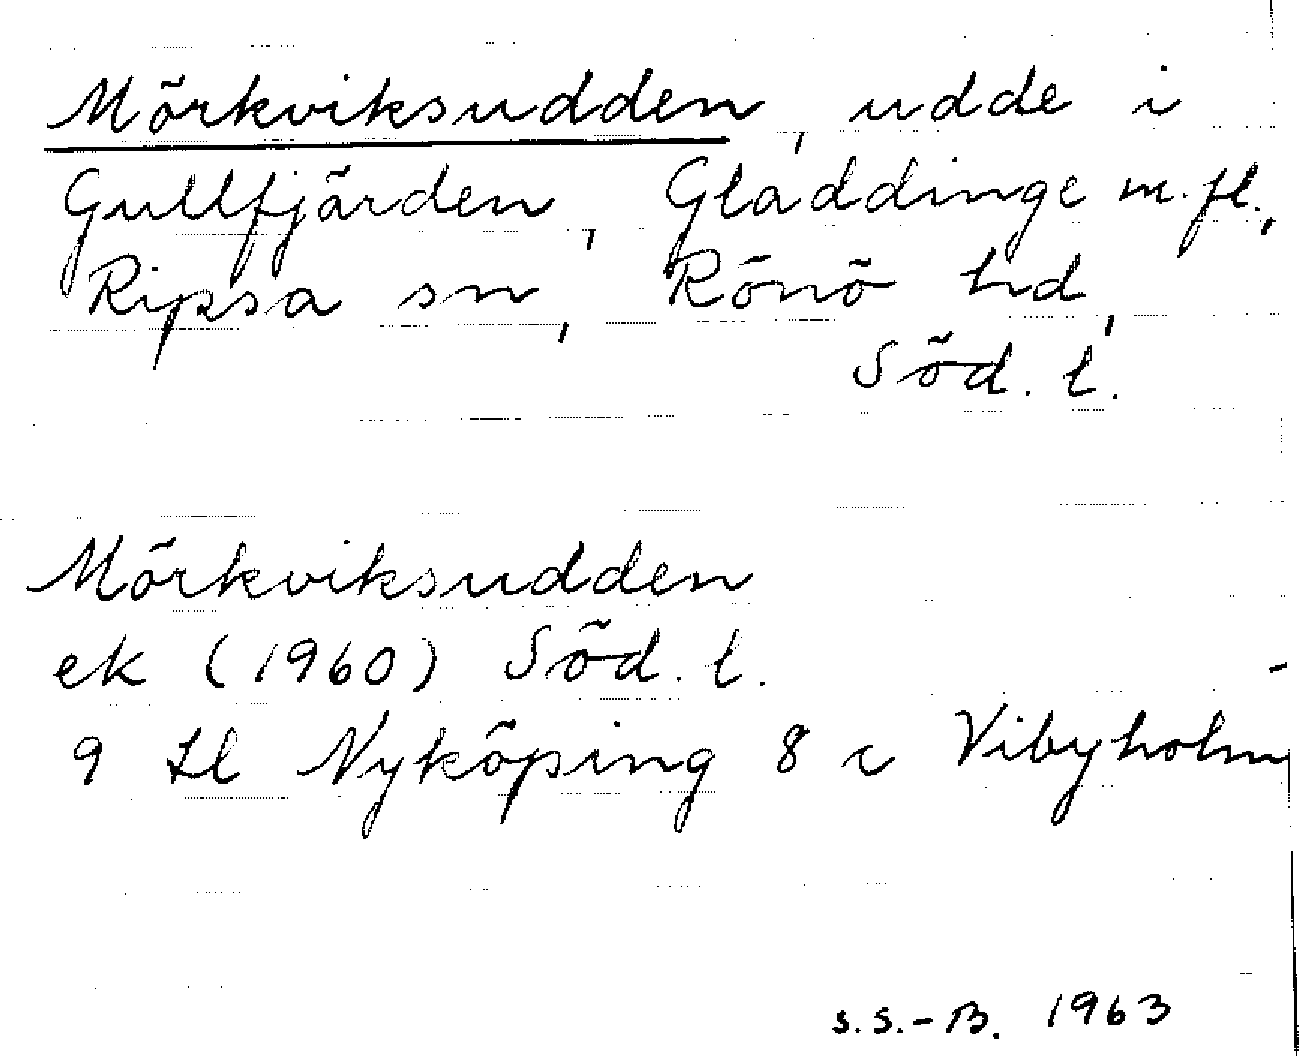 Mörkviksudden, udde i
Gullfjärden, Gläddinge m.fl.,
Ripsa sn, Rönö hd,
Söd. l.
Mörkviksudden
ek (1960) Söd. l.
9 H Nyköping 8 c Vibyholm
S.S.-B. 1963